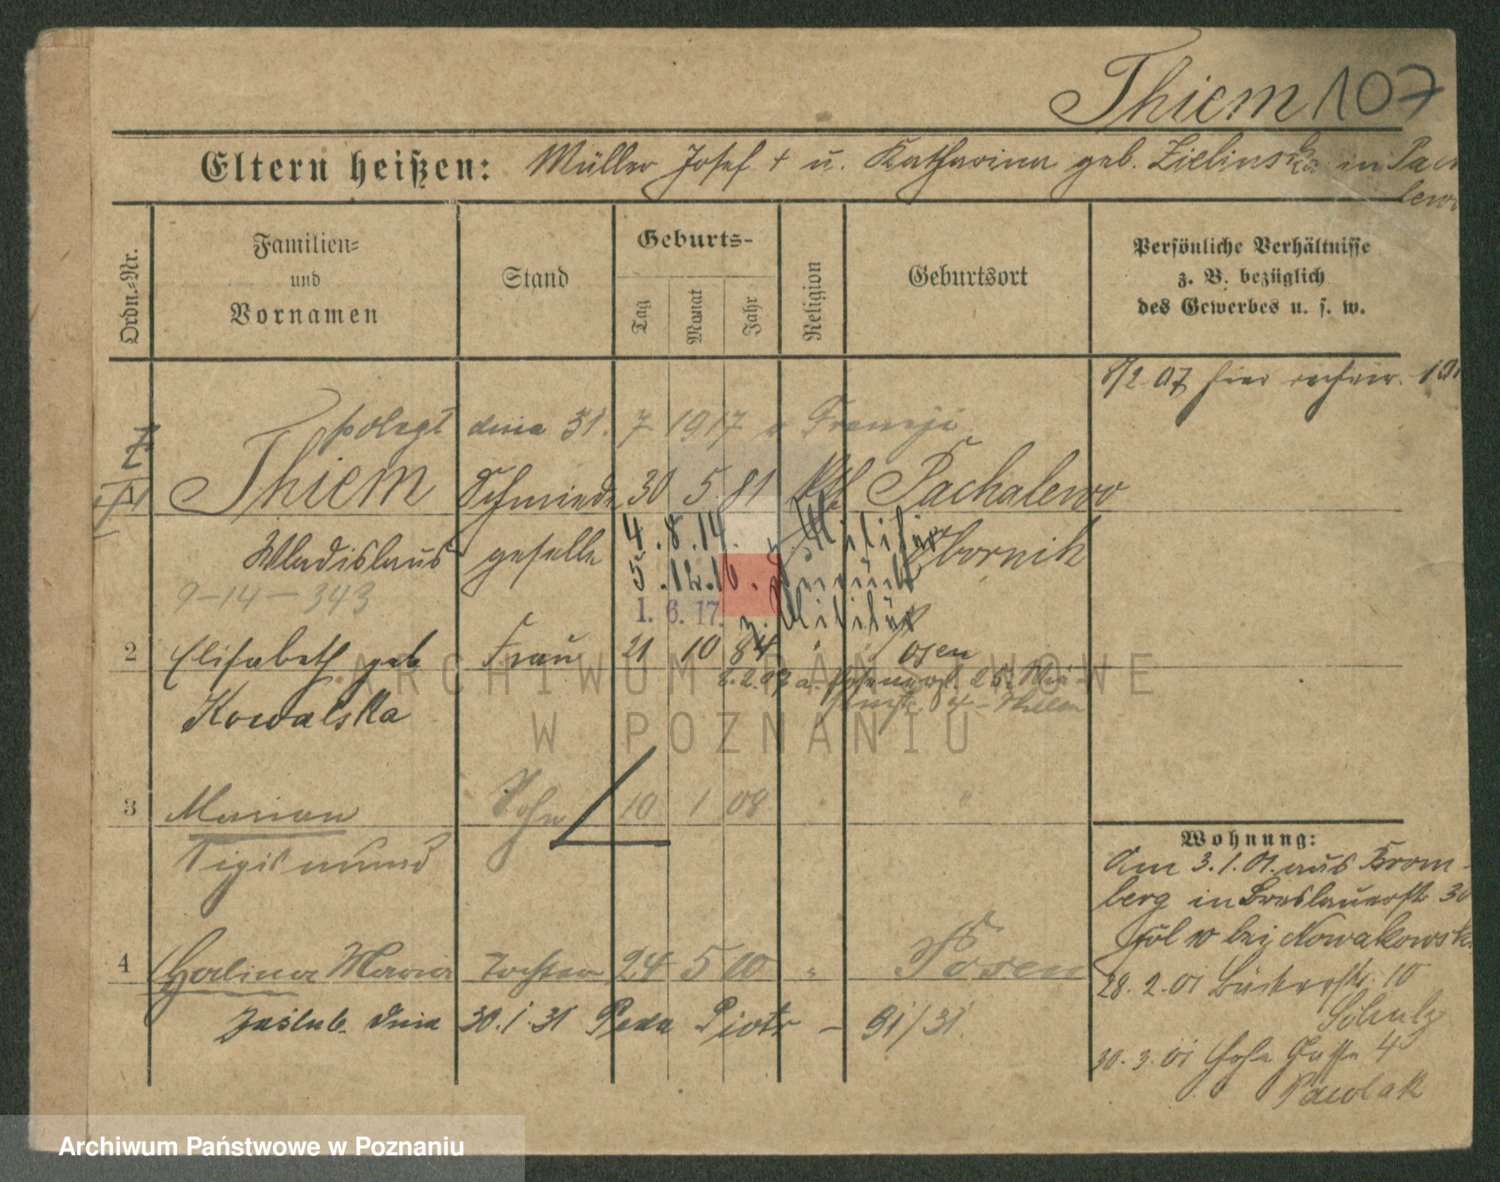 Thiem 107
Eltern heißen: Müller Josef † u. Katharina geb. Zielinska in
Ordn.-Nr.
Familien-
und
Vornamen
Stand
Geburts-
Tag
Monat
Jahr
Religion
Geburtsort
Persönliche Verhältnisse
z. B. bezüglich
des Gewerbes u. s. w.
8/2 07 hier
poległ dnia 31. 7 1917 w Francji
Thiem Schmiede 30 5 81 kth Pachalewo
Wladislaus geselle 4.8.14. z. Militär Obornik
5.12.16. zurück
9-14-343 1.6.17. z. Militär
2 Elisabeth geb Frau 21 10 84 " Posen
Kowalska
ARCHIWUM PAŃSTWOWE
W POZNANIU
3 Marian Sohn 10 1 08 " "
Sigismund
4 Halina Maria Tochter 24 5 10 " Posen
zaślub. dnia 30.1.31 Piotr – 91/31.
Wohnung:
Am 3.1.01. aus Brom-
berg in Breslauerstr 30
bei Nowakowsk
28.2.01 Bäckerstr. 10
Schulz
30.3.01 Hohe Gasse 4
Pawlak
Archiwum Państwowe w Poznaniu